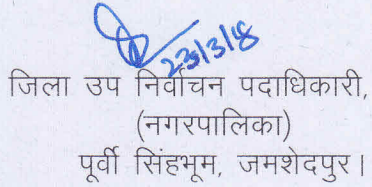 23/3/18
जिला उप निर्वाचन पदाधिकारी,
(नगरपालिका)
पूर्वी सिंहभूम, जमशेदपुर।